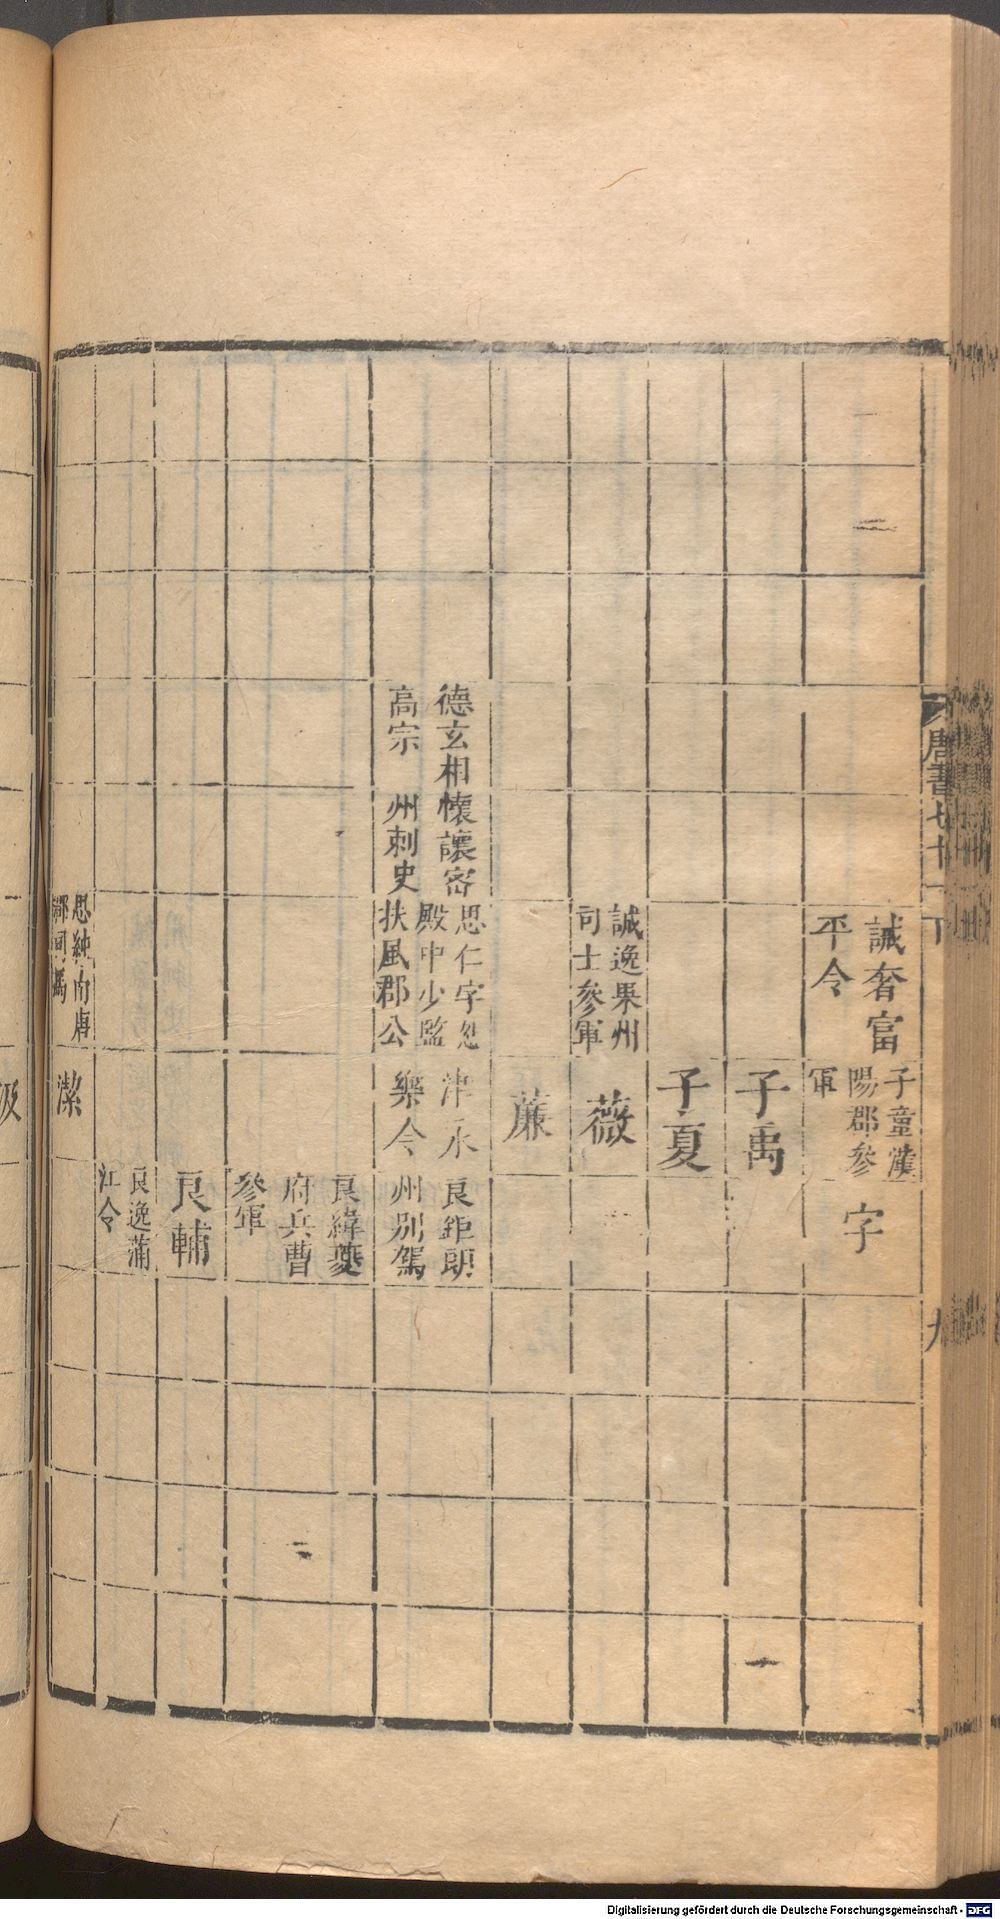 唐書七十一下
九
誠奢富
平令
子童漢
陽郡參
軍
字
子禹
子夏
誠逸果州
司士參軍
薇
薕
德玄相
高宗
懷讓密
州刺史
思仁字忽
殿中少監
扶風郡公
津永
樂令
良鉅朗
州別駕
良緯夔
府兵曹
參軍
良輔
良逸蒲
江令
思純
潔
汲
Digitalisierung gefördert durch die Deutsche Forschungsgemeinschaft - DFG